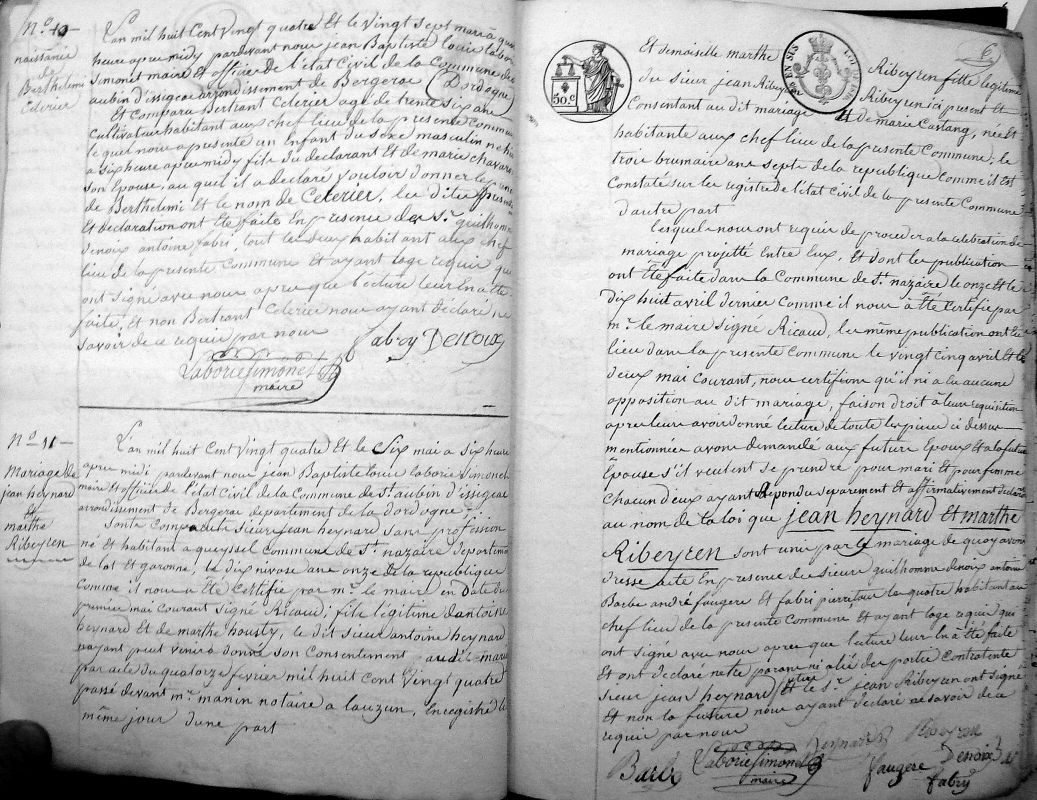 N.o 10
naissance
de
Berthelemi
Celerier
L'an mil huit Cent vingt quatre et le vingt sept mars a quatre
heure apres midy pardevant nous jean Baptiste louis laborie
Simonet maire et officier de l'état Civil de la Commune de St
aubin d'issigeac arrondissement de Bergerac (Dordogne)
Et Comparu Bertrant Celerier age de trente six ans
Cultivateur habitant aux chef lieu de la presente Commune
le quel nous a presenté un Enfant du sexe masculin né hier
a six heure apres midy fils du declarant et de marie chavaro
son Epouse, au quel il a declaré vouloir donner le prenom
de Berthelemi et le nom de Celerier, les dites presentation
Et declaration ont eté faite En presence des Srs guilhomme
denoix antoine fabri, tout les deux habitant aux chef
lieu de la presente Commune Et ayant l'age requis qui
ont signé avec nous apres que lecture leur En a été
faite, et non Bertrant Celerier nous ayant déclaré ne
savoir de ce requis par nous
fabry Denoix
Laborie Simonet
maire
N.o 11
Mariage de
jean heynard
Et
marthe
Ribeyren
L'an mil huit Cent vingt quatre et le Six mai a six heure
apres midi pardevant nous jean Baptiste louis laborie Simonet
maire et officier de l'état Civil de la Commune de St aubin d'issigeac
arrondissement de Bergerac departement de la dordogne
Sont Comparu le Sieur jean heynard sans profession
né et habitant a queyssel Commune de St nazaire departement
de lot et garonne, le dix nivose ans onze de la republique
Comme il nous a été Certifié par mr le maire en date du
premier mai Courant signé Ricaud; fils légitime d'antoine
heynard et de marthe housty, le dit sieur antoine heynard
n'ayant peut venir a donné son Consentement au dit mariage
par acte du quatorze fevrier mil huit Cent vingt quatre
passé devant mr manin notaire a lauzun, Enregistré le
même jour d'une part
6
50.c
Et demoiselle marthe Ribeyren fille legitime
du sieur jean Ribeyren Ribeyren ici present et
Consentant au dit mariage Et de marie Castang, née et
habitante aux chef lieu de la presente Commune, le
trois brumaire ans sept de la republique Comme il est
Constaté sur les registre de l'état Civil de la presente Commune
d'autre part
Lesquels nous ont requis de proceder a la celebration de
mariage projetté Entre Eux, et dont les publication
ont été faite dans la Commune de St nazaire le onze et le
dix huit avril dernier Comme il nous a été Certifié par
mr le maire signé Ricaud, les même publication ont eu
lieu dans la presente Commune le vingt cinq avril Et le
deux mai Courant, nous certifions qu'il ni a eu aucune
opposition au dit mariage, faison droit a leur requisition
apres leur avoir donné lecture de toute les piece ci dessus
mentionnée avons demandé aux future Epoux et a la future
Épouse s'il veulent se prendre pour mari et pour femme
chacun d'eux ayant Repondu separement et affirmativement declarons
au nom de la loi que jean heynard Et marthe
Ribeyren sont unis par le mariage de quoy avons
dressé acte En presence des sieurs guilhomme denoix antoine
Barbe andré faugere Et fabri pierre tous quatre habitant au
chef lieu de la presente Commune, et ayant l'age requis qui
ont signé avec nous apres que lecture leur En a été faite
Et ont declaré n'etre parans ni alié des partie Contratente
sieur jean heynard et le Sr jean Ribeyren ont signé
Et non la future nous ayant declaré ne savoir de ce
requis par nous
heynard Ribeyren
Barbe Laborie Simonet faugere Denoix
maire fabry